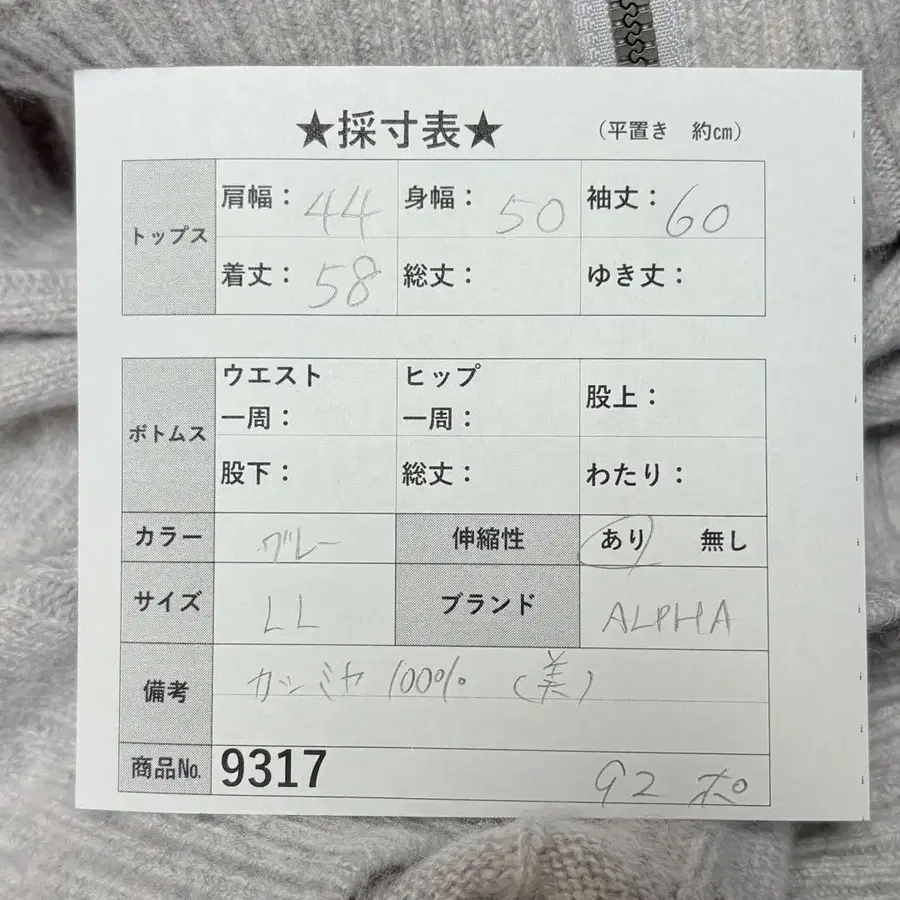 ★採寸表★ (平置き 約㎝)
トップス 肩幅: 44 身幅: 50 袖丈: 60
着丈: 58 総丈: ゆき丈:
ボトムス ウエスト一周: ヒップ一周: 股上:
股下: 総丈: わたり:
カラー グレー 伸縮性 あり 無し
サイズ LL ブランド ALPHA
備考 カシミヤ 100% (美)
商品№ 9317 92 ポ